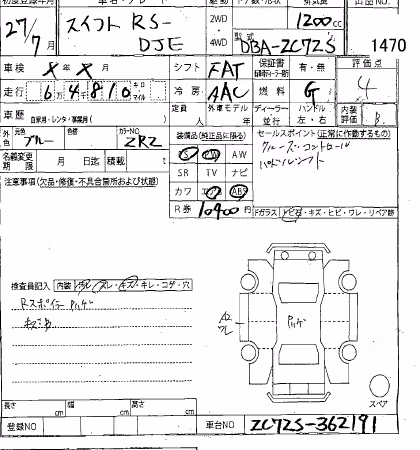 初度登録年月 車名・グレード 駆動 ドア数・形状 排気量 出品NO
27/7月 スイフト RS-DJE 2WD 4WD 1200cc
型式 DBA-ZC72S 1470
車検 X年 X月 シフト FAT 保証書 有・無 評価点 4
走行 6万4千810 キロ マイル 冷房 AAC 燃料 G
車歴 自家用・レンタ・事業用( ) 定員 人 外車モデル 年 ディーラー・並行 ハンドル 左・右 内装評価 B
外色 元色 ブルー 色替 カラーNO ZRZ
装備品(純正品に限る) セールスポイント(正常に作動するもの)
PS PW AW クルーズ・コントロール
名義変更期限 月 日迄 積載 t SR TV ナビ パドルシフト
注意事項(欠品・修復・不具合箇所および状態) カワ エアB ABS
R券 10400円 Fガラス トビ石・キズ・ヒビ・ワレ・リペア跡
検査員記入 内装 汚レ・スレ・キズ・キレ・コゲ・穴
Rスポイラー ハゲ
キズ有
ワレ
ハゲ
スペア
長さ cm 幅 cm 高さ cm
登録NO 車台NO ZC72S-362191